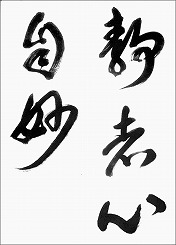 静者心
自妙